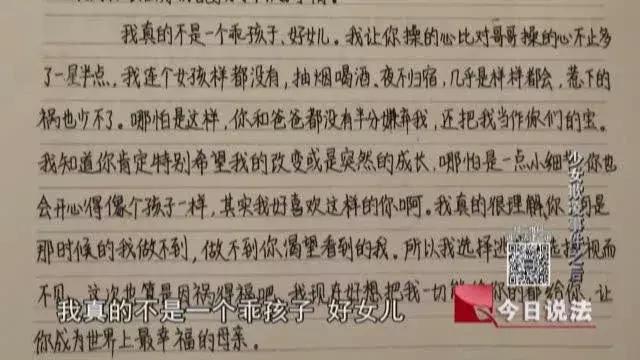 我真的不是一个乖孩子、好女儿。我让你操的心比对哥哥操的心不止多
了一星半点，我连个女孩样都没有，抽烟喝酒、夜不归宿，几乎是样样都会，惹下的
祸也少不了。哪怕是这样，你和爸爸都没有半分嫌弃我，还把我当作你们的宝。
我知道你肯定特别希望我的改变或是突然的成长，哪怕是一点小细节，你也
会开心得像个孩子一样，其实我好喜欢这样的你啊。我真的很理解你
是
那时候的我做不到，做不到你渴望看到的我。所以我选择逃
选择
视而
不见。这次也算是因祸得福吧。我现在好想把我一切能给你的都给你，让
你成为世界上最幸福的母亲。
我真的不是一个乖孩子 好女儿
今日说法
少女
之后